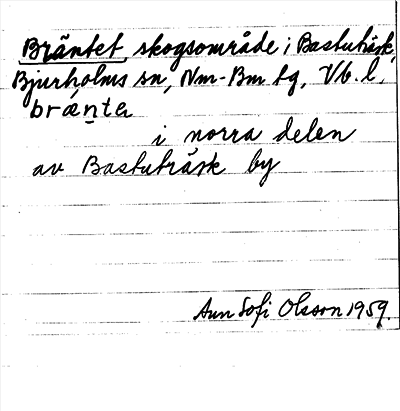 Bräntet skogsområde i Bastuträsk,
Bjurholms sn, Nm-Bm tg, Vb. l.
bræ̀n̠ta
i norra delen
av Bastuträsk by
Ann Sofi Olsson 1959.